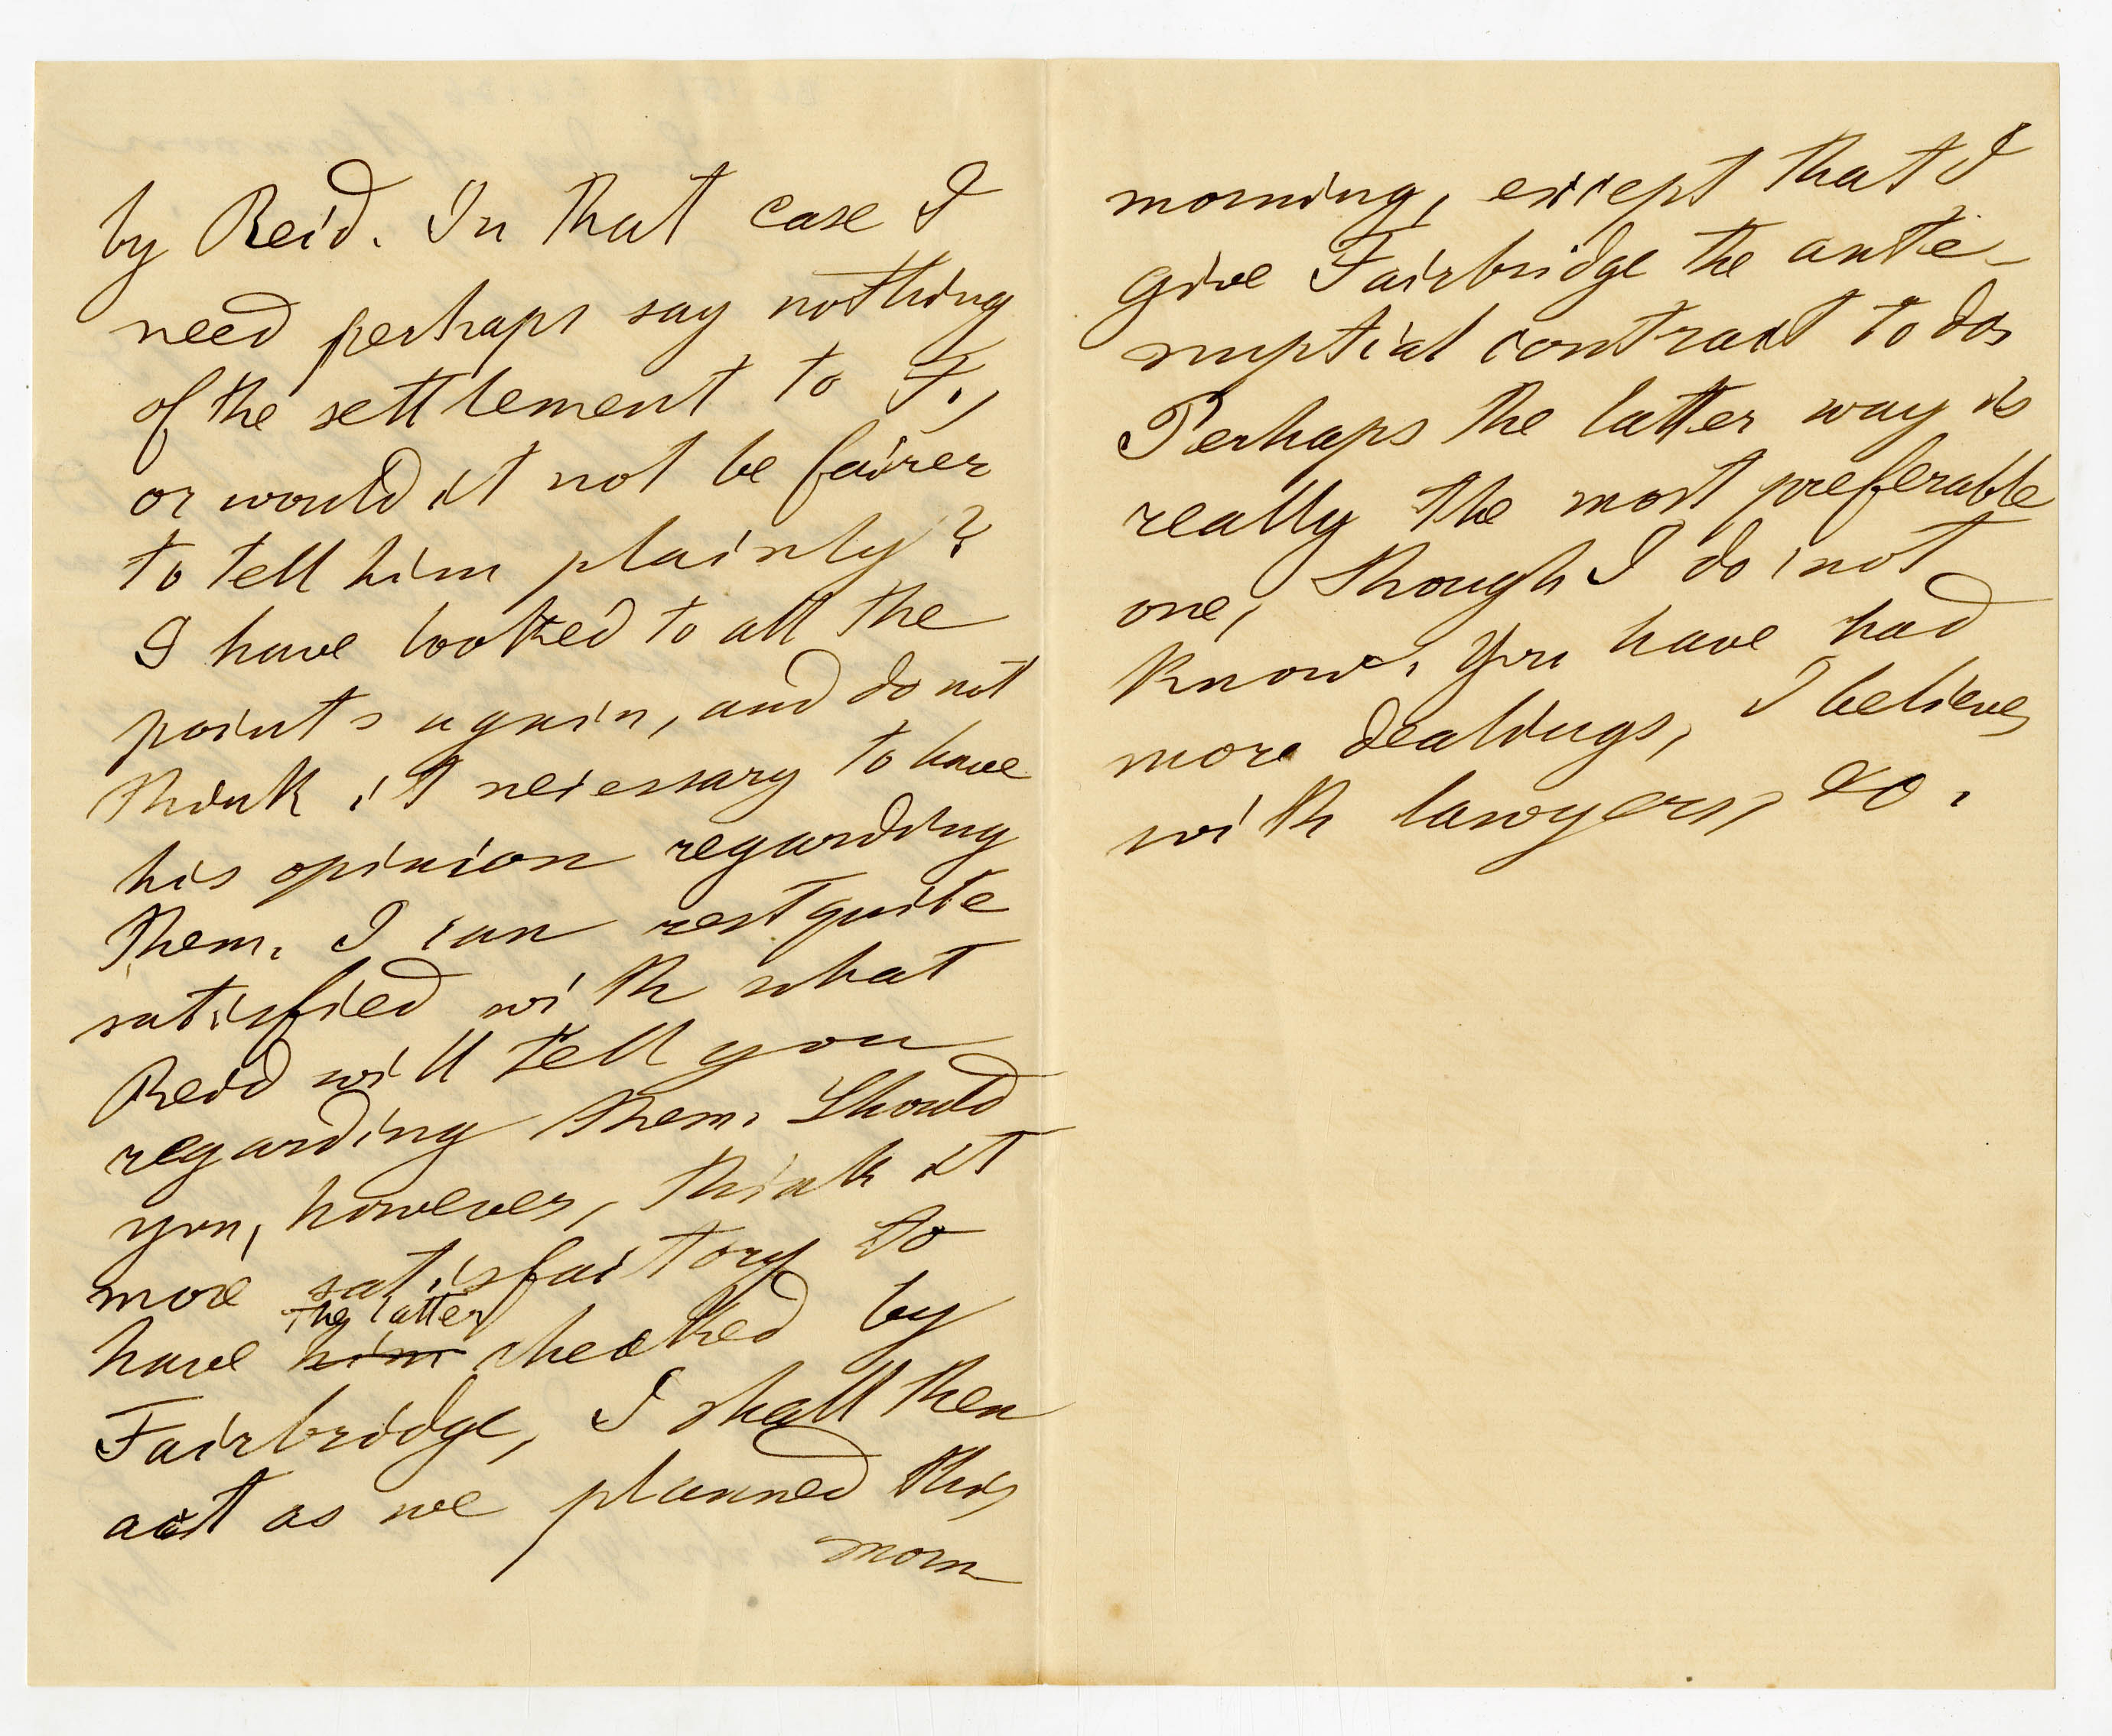 by Reid. In that case I
need perhaps say nothing
of the settlement to F.,
or would it not be fairer
to tell him plainly?
I have looked to all the
points again, and do not
think it necessary to have
his opinion regarding
them. I can rest quite
satisfied with what
Reid will tell you
regarding them. Should
you, however, think it
more satisfactory to
the latter
have him checked by
Fairbridge, I shall then
act as we planned this
morn
morning, except that I
give Fairbridge the ante-
nuptial contract to do.
Perhaps the latter way is
really the most preferable
one, though I do not
know. You have had
more dealings, I believe,
with lawyers, &c.